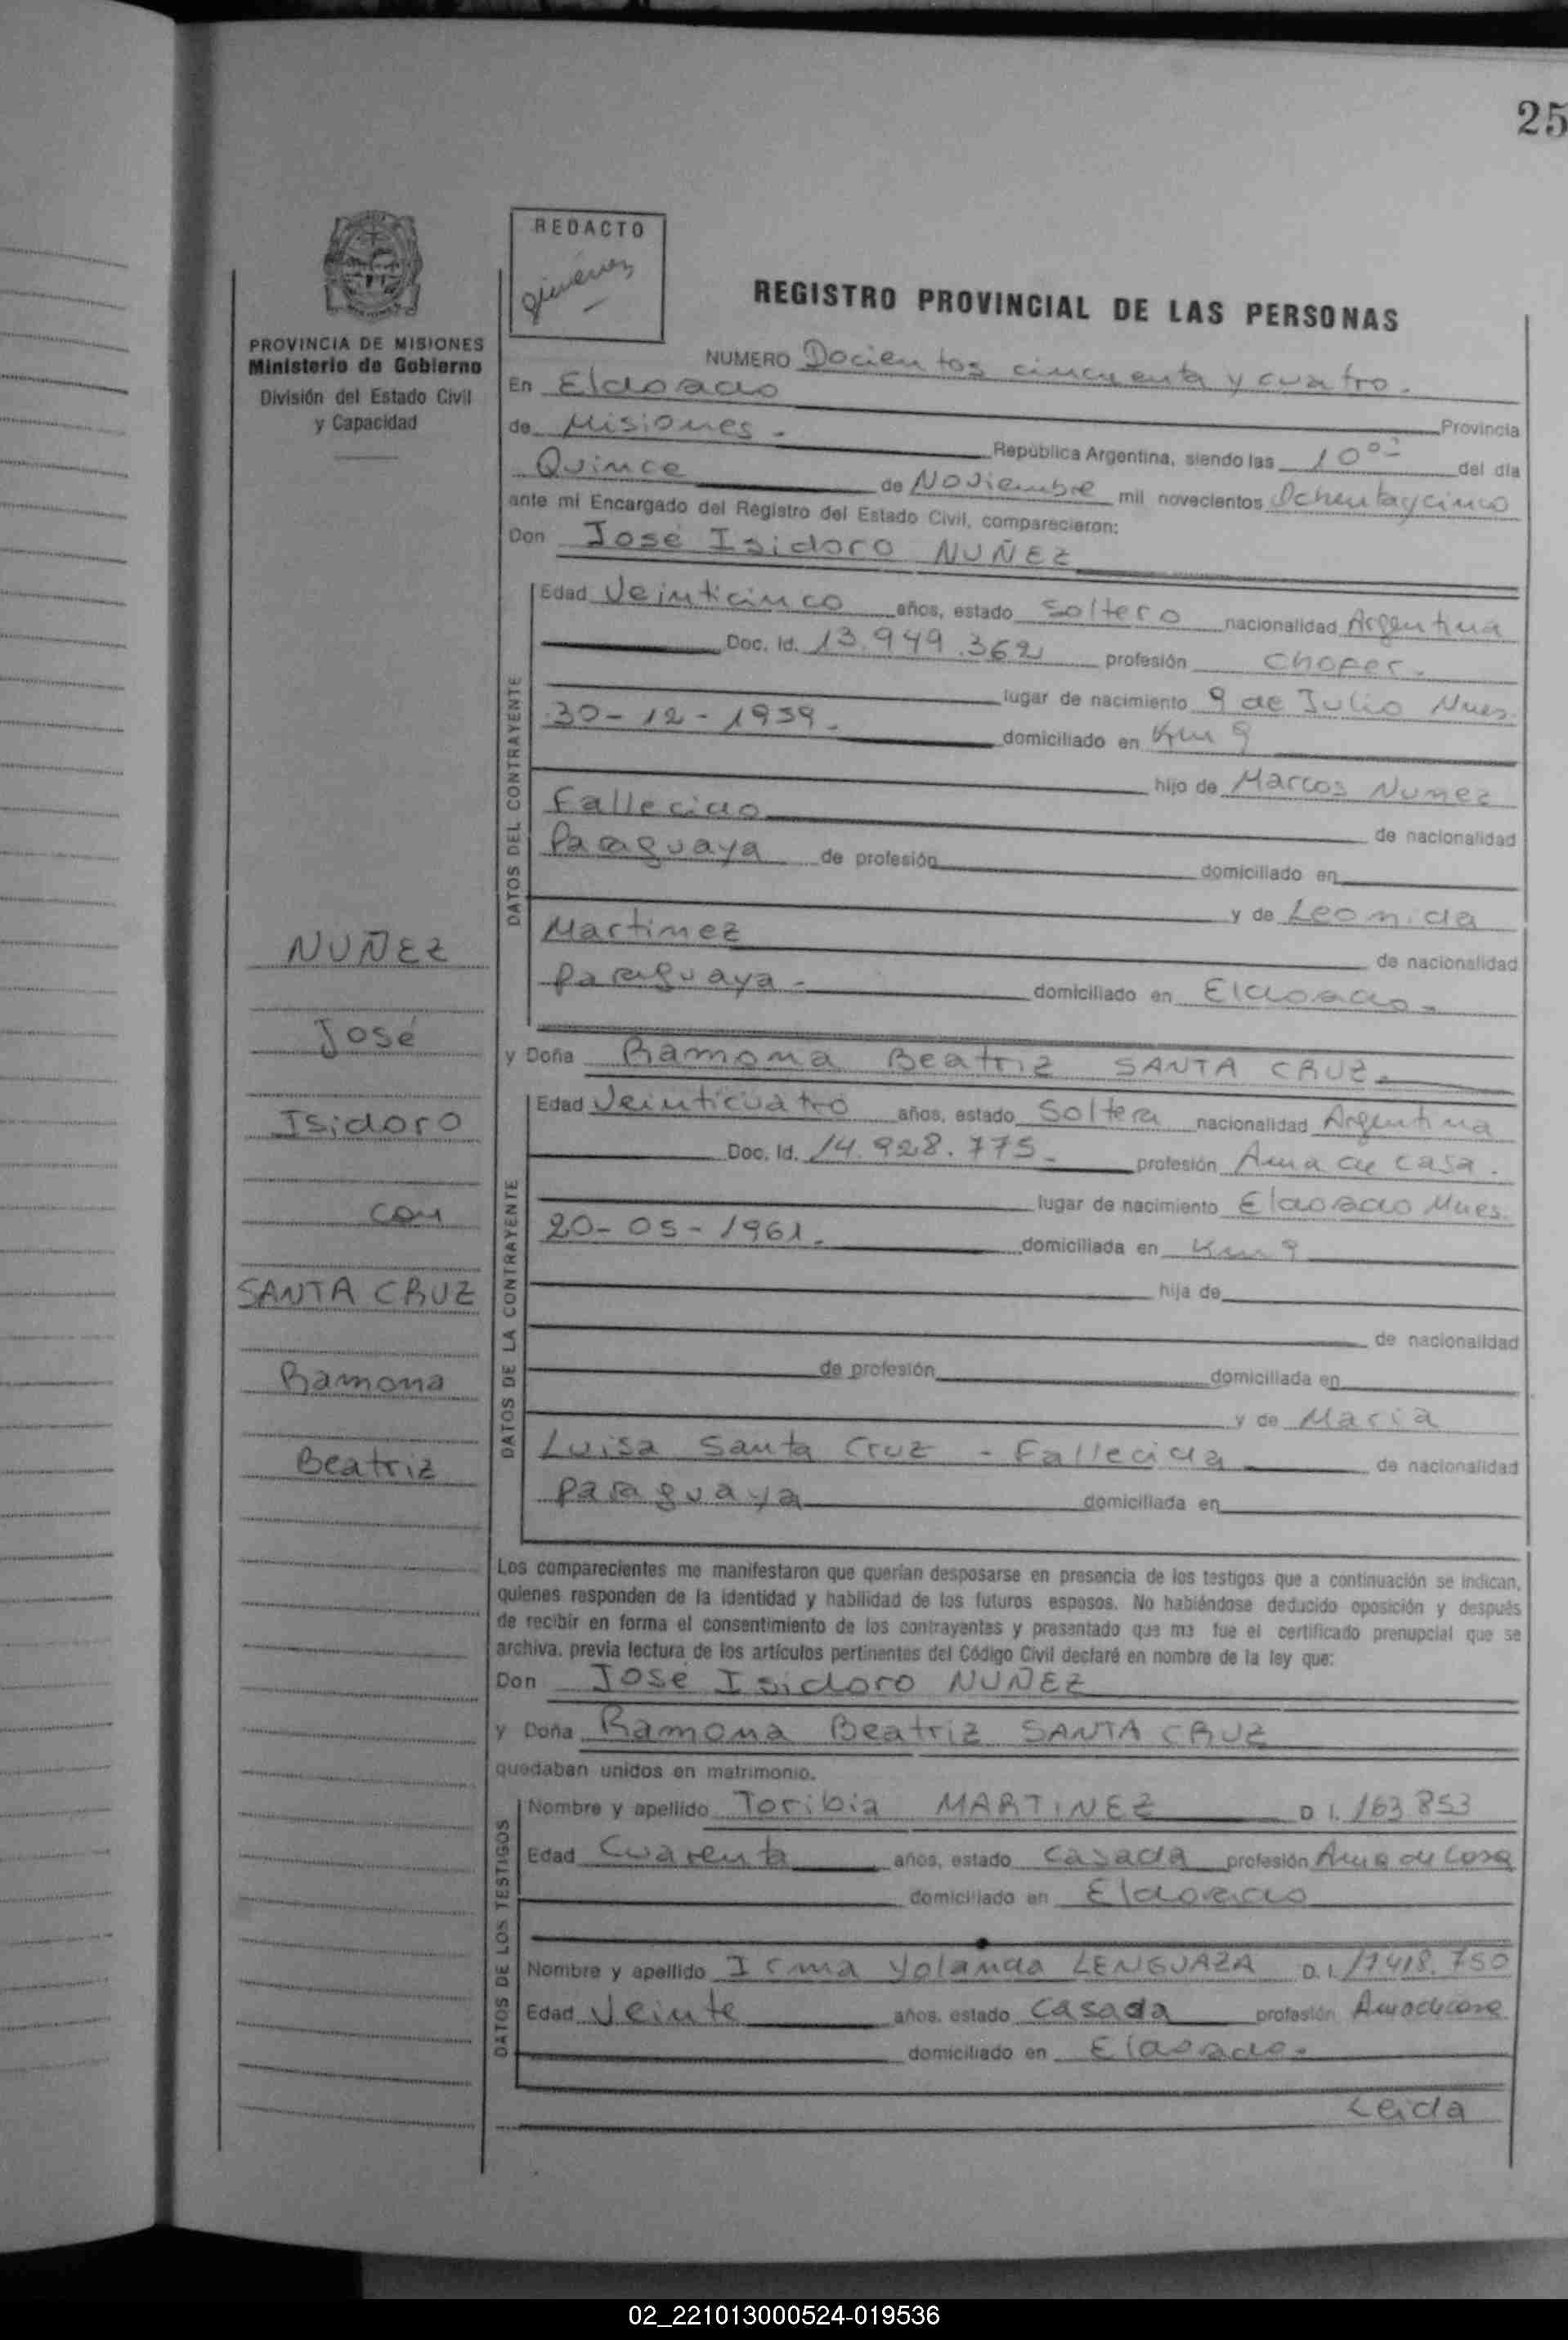 25
REDACTO
Giménez
PROVINCIA DE MISIONES
Ministerio de Gobierno
División del Estado Civil
y Capacidad
NUÑEZ
José
Isidoro
con
SANTA CRUZ
Ramona
Beatriz
REGISTRO PROVINCIAL DE LAS PERSONAS
NUMERO Docientos cincuenta y cuatro.
En Eldorado Provincia
de Misiones. República Argentina, siendo las 10 00 del día
Quince de Noviembre mil novecientos Ochentaycinco
ante mi Encargado del Registro del Estado Civil, comparecieron:
Don José Isidoro NUÑEZ
DATOS DEL CONTRAYENTE
Edad Veinticinco años, estado Soltero nacionalidad Argentina
Doc. Id. 13.949.362 profesión Chofer.
lugar de nacimiento 9 de Julio Mnes.
30-12-1959. domiciliado en Km 9
hijo de Marcos Nunez
Fallecido de nacionalidad
Paraguaya de profesión domiciliado en
y de Leonida
Martinez de nacionalidad
paraguaya - domiciliado en Eldorado.
y Doña Ramona Beatriz SANTA CRUZ
DATOS DE LA CONTRAYENTE
Edad Veinticuatro años, estado Soltera nacionalidad Argentina
Doc. Id. 14.928.775. profesión Ama de casa.
lugar de nacimiento Eldorado Mnes.
20-05-1961. domiciliada en Km 9
hija de
de nacionalidad
de profesión domiciliada en
y de Maria
Luisa Santa Cruz - Fallecida de nacionalidad
paraguaya domiciliada en
Los comparecientes me manifestaron que querían desposarse en presencia de los testigos que a continuación se indican,
quienes responden de la identidad y habilidad de los futuros esposos. No habiéndose deducido oposición y después
de recibir en forma el consentimiento de los contrayentes y presentado que me fue el certificado prenupcial que se
archiva, previa lectura de los artículos pertinentes del Código Civil declaré en nombre de la ley que:
Don José Isidoro NUÑEZ
y Doña Ramona Beatriz SANTA CRUZ
quedaban unidos en matrimonio.
DATOS DE LOS TESTIGOS
Nombre y apellido Toribia MARTINEZ D. I. 163.853
Edad Cuarenta años, estado Casada profesión Ama de Casa
domiciliado en Eldorado
Nombre y apellido Irma Yolanda LENGUAZA D. I. 17418.750
Edad Veinte años, estado Casada profesión Amadecasa
domiciliado en Eldorado.
Leida
02_221013000524-019536